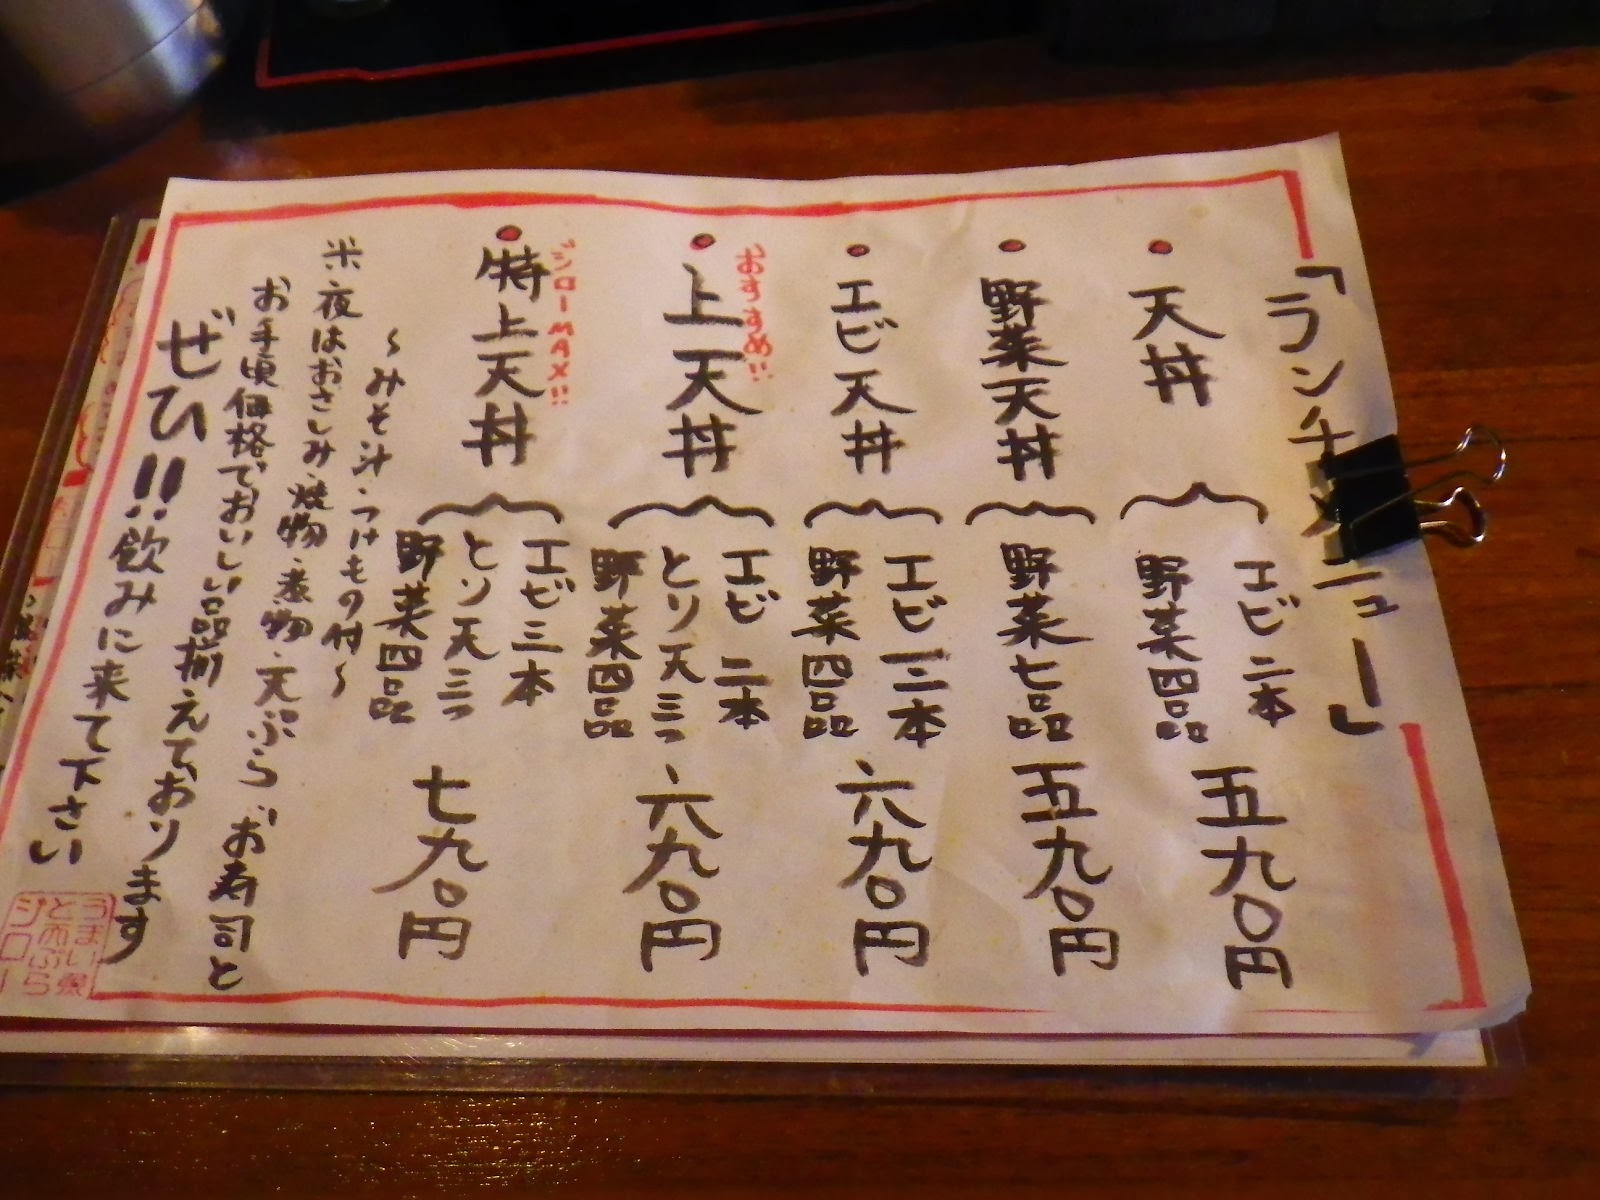 「ランチ
ニュー」
天丼
エビ二本
野菜四品
五九〇円
野菜天丼
野菜七品
五九〇円
エビ天丼
エビ三本
野菜四品
六九〇円
おすすめ!!
上天丼
エビ二本
とり天三つ
野菜四品
六九〇円
ジローMAX!!
特上天丼
エビ三本
とり天三つ
野菜四品
七九〇円
〜みそ汁・つけもの付〜
米夜はおさしみ・焼物・煮物・天ぷら お寿司と
お手頃価格でおいしい品揃えております
ぜひ!!飲みに来て下さい
うまい魚
と天ぷら
ジロー